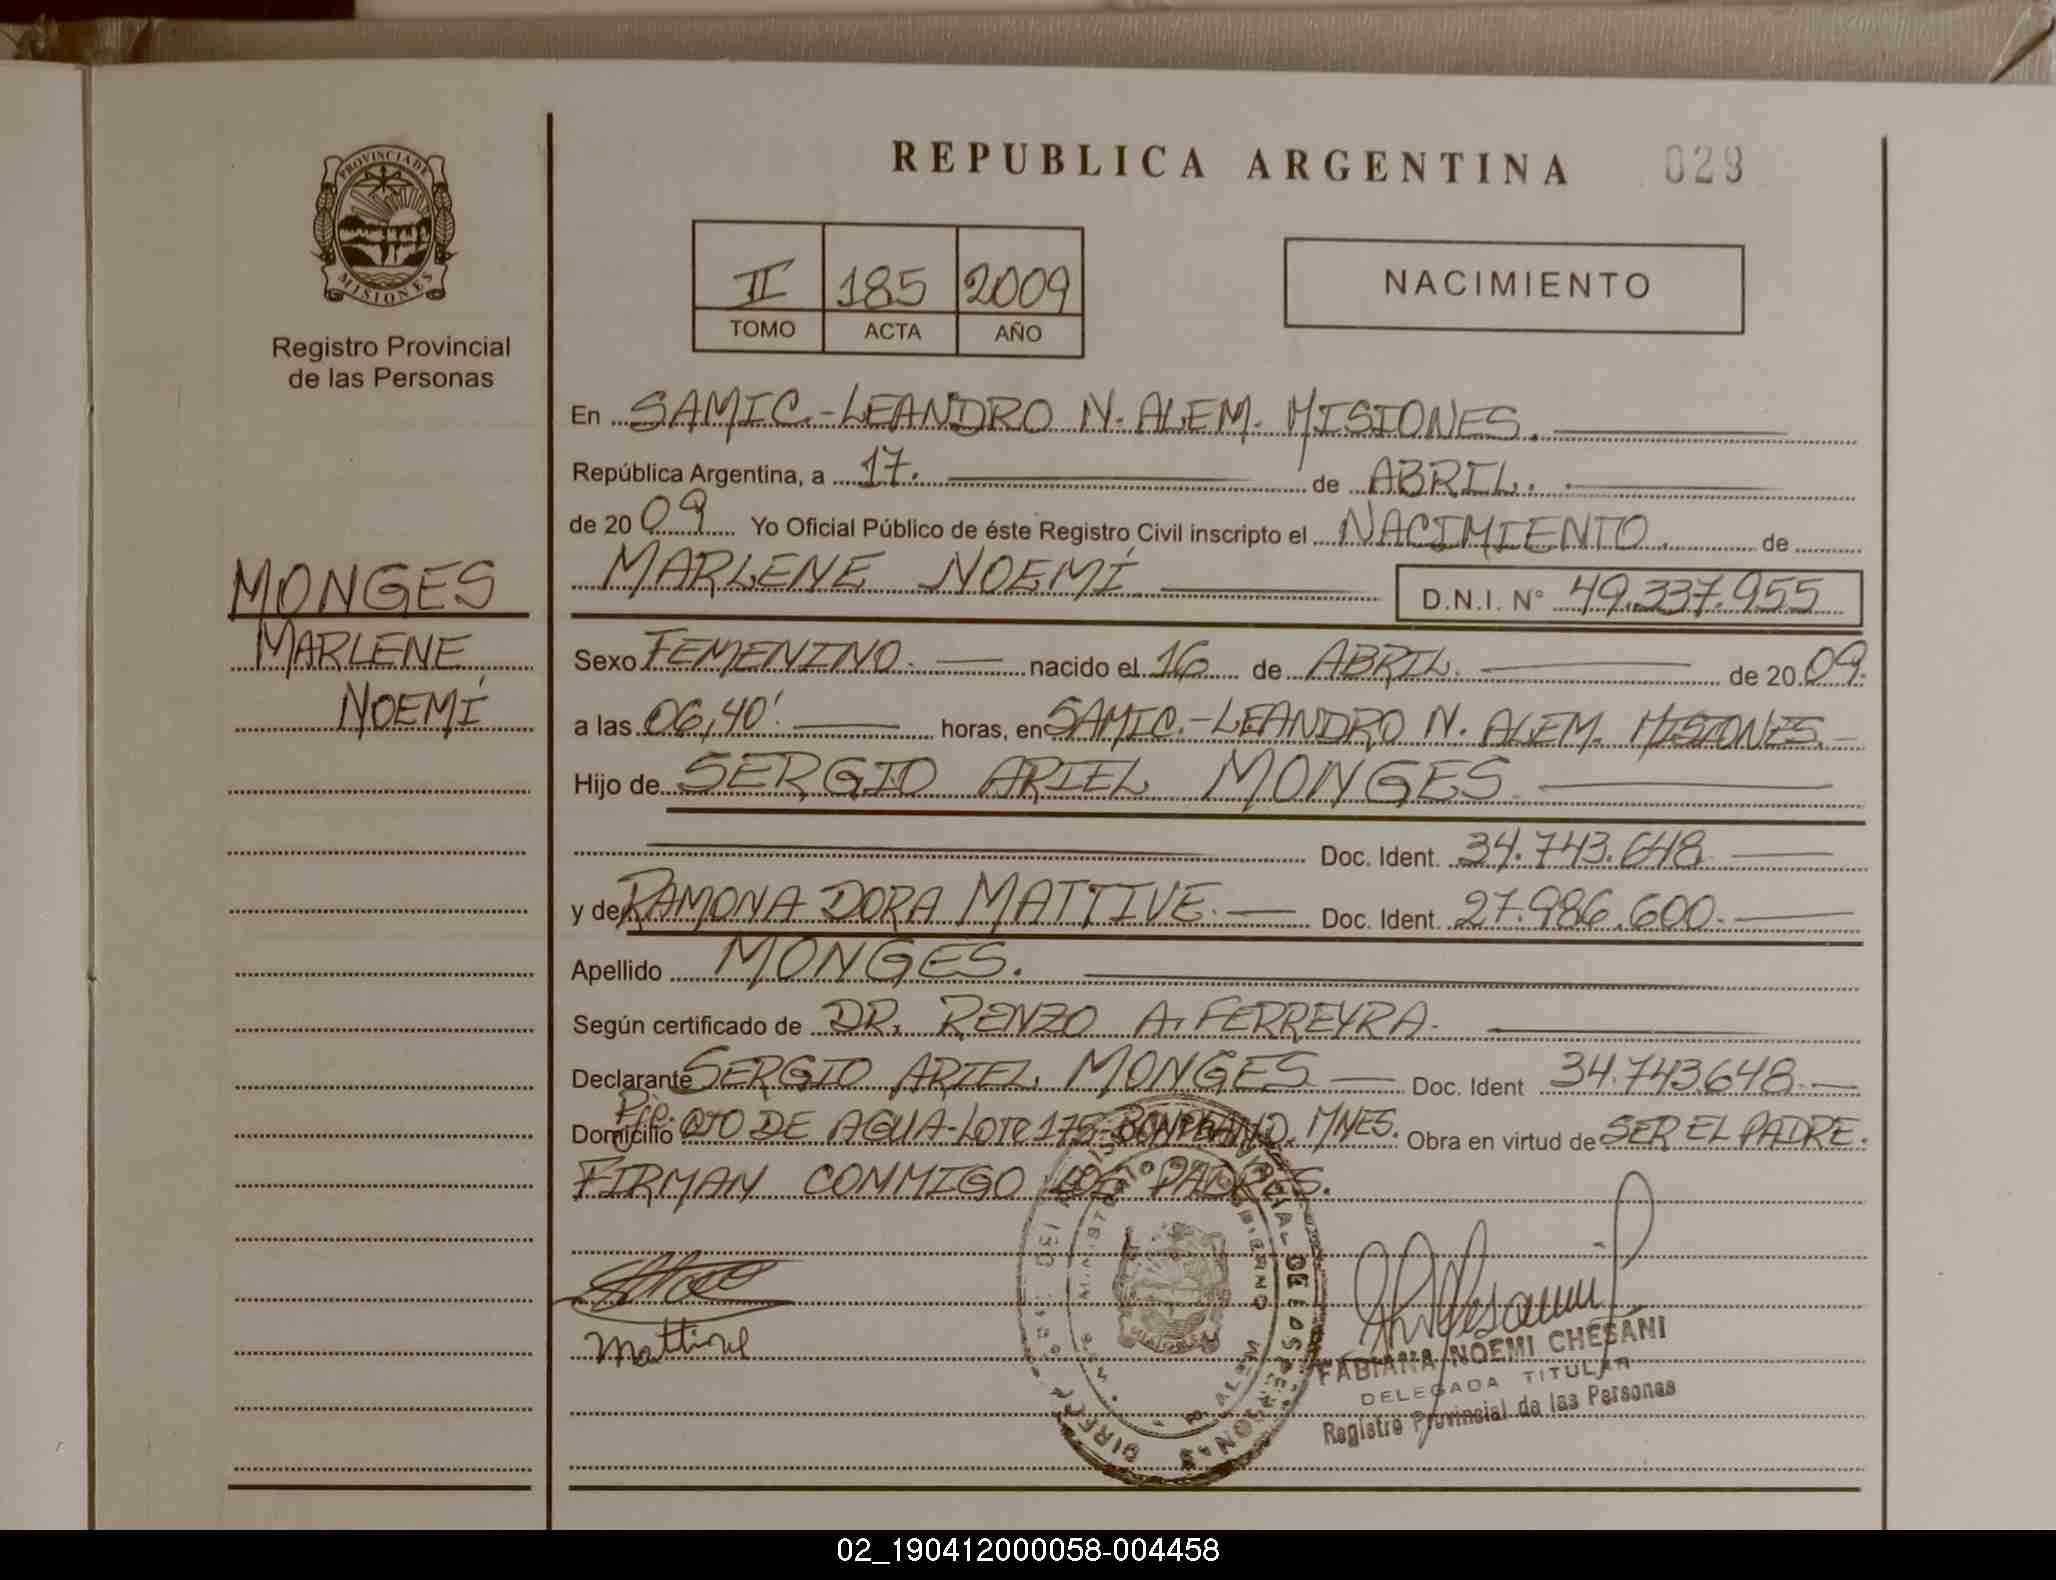 REPUBLICA ARGENTINA 029
PROVINCIA DE
MISIONES
Registro Provincial
de las Personas
II 185 2009
TOMO ACTA AÑO
NACIMIENTO
En SAMIC.-LEANDRO N. ALEM. MISIONES.
República Argentina, a 17. de ABRIL.
de 2009 Yo Oficial Público de éste Registro Civil inscripto el NACIMIENTO. de
MARLENE NOEMÍ D.N.I. N° 49.337.955
MONGES
MARLENE
NOEMÍ
Sexo FEMENINO. nacido el 16 de ABRIL. de 2009.
a las 06,40'. horas, en SAMIC.-LEANDRO N. ALEM. MISIONES.
Hijo de SERGIO ARIEL MONGES
Doc. Ident. 34.743.648
y de RAMONA DORA MATTIVE. Doc. Ident. 27.986.600.
Apellido MONGES.
Según certificado de DR. RENZO A. FERREYRA.
Declarante SERGIO ARIEL MONGES Doc. Ident 34.743.648.
Domicilio Pje. OJO DE AGUA-LOTE 175-BONPLAND. MNES. Obra en virtud de SER EL PADRE.
FIRMAN CONMIGO LOS PADRES.
Mattive
FABIANA NOEMI CHESANI
DELEGADA TITULAR
Registro Provincial de las Personas
02_190412000058-004458